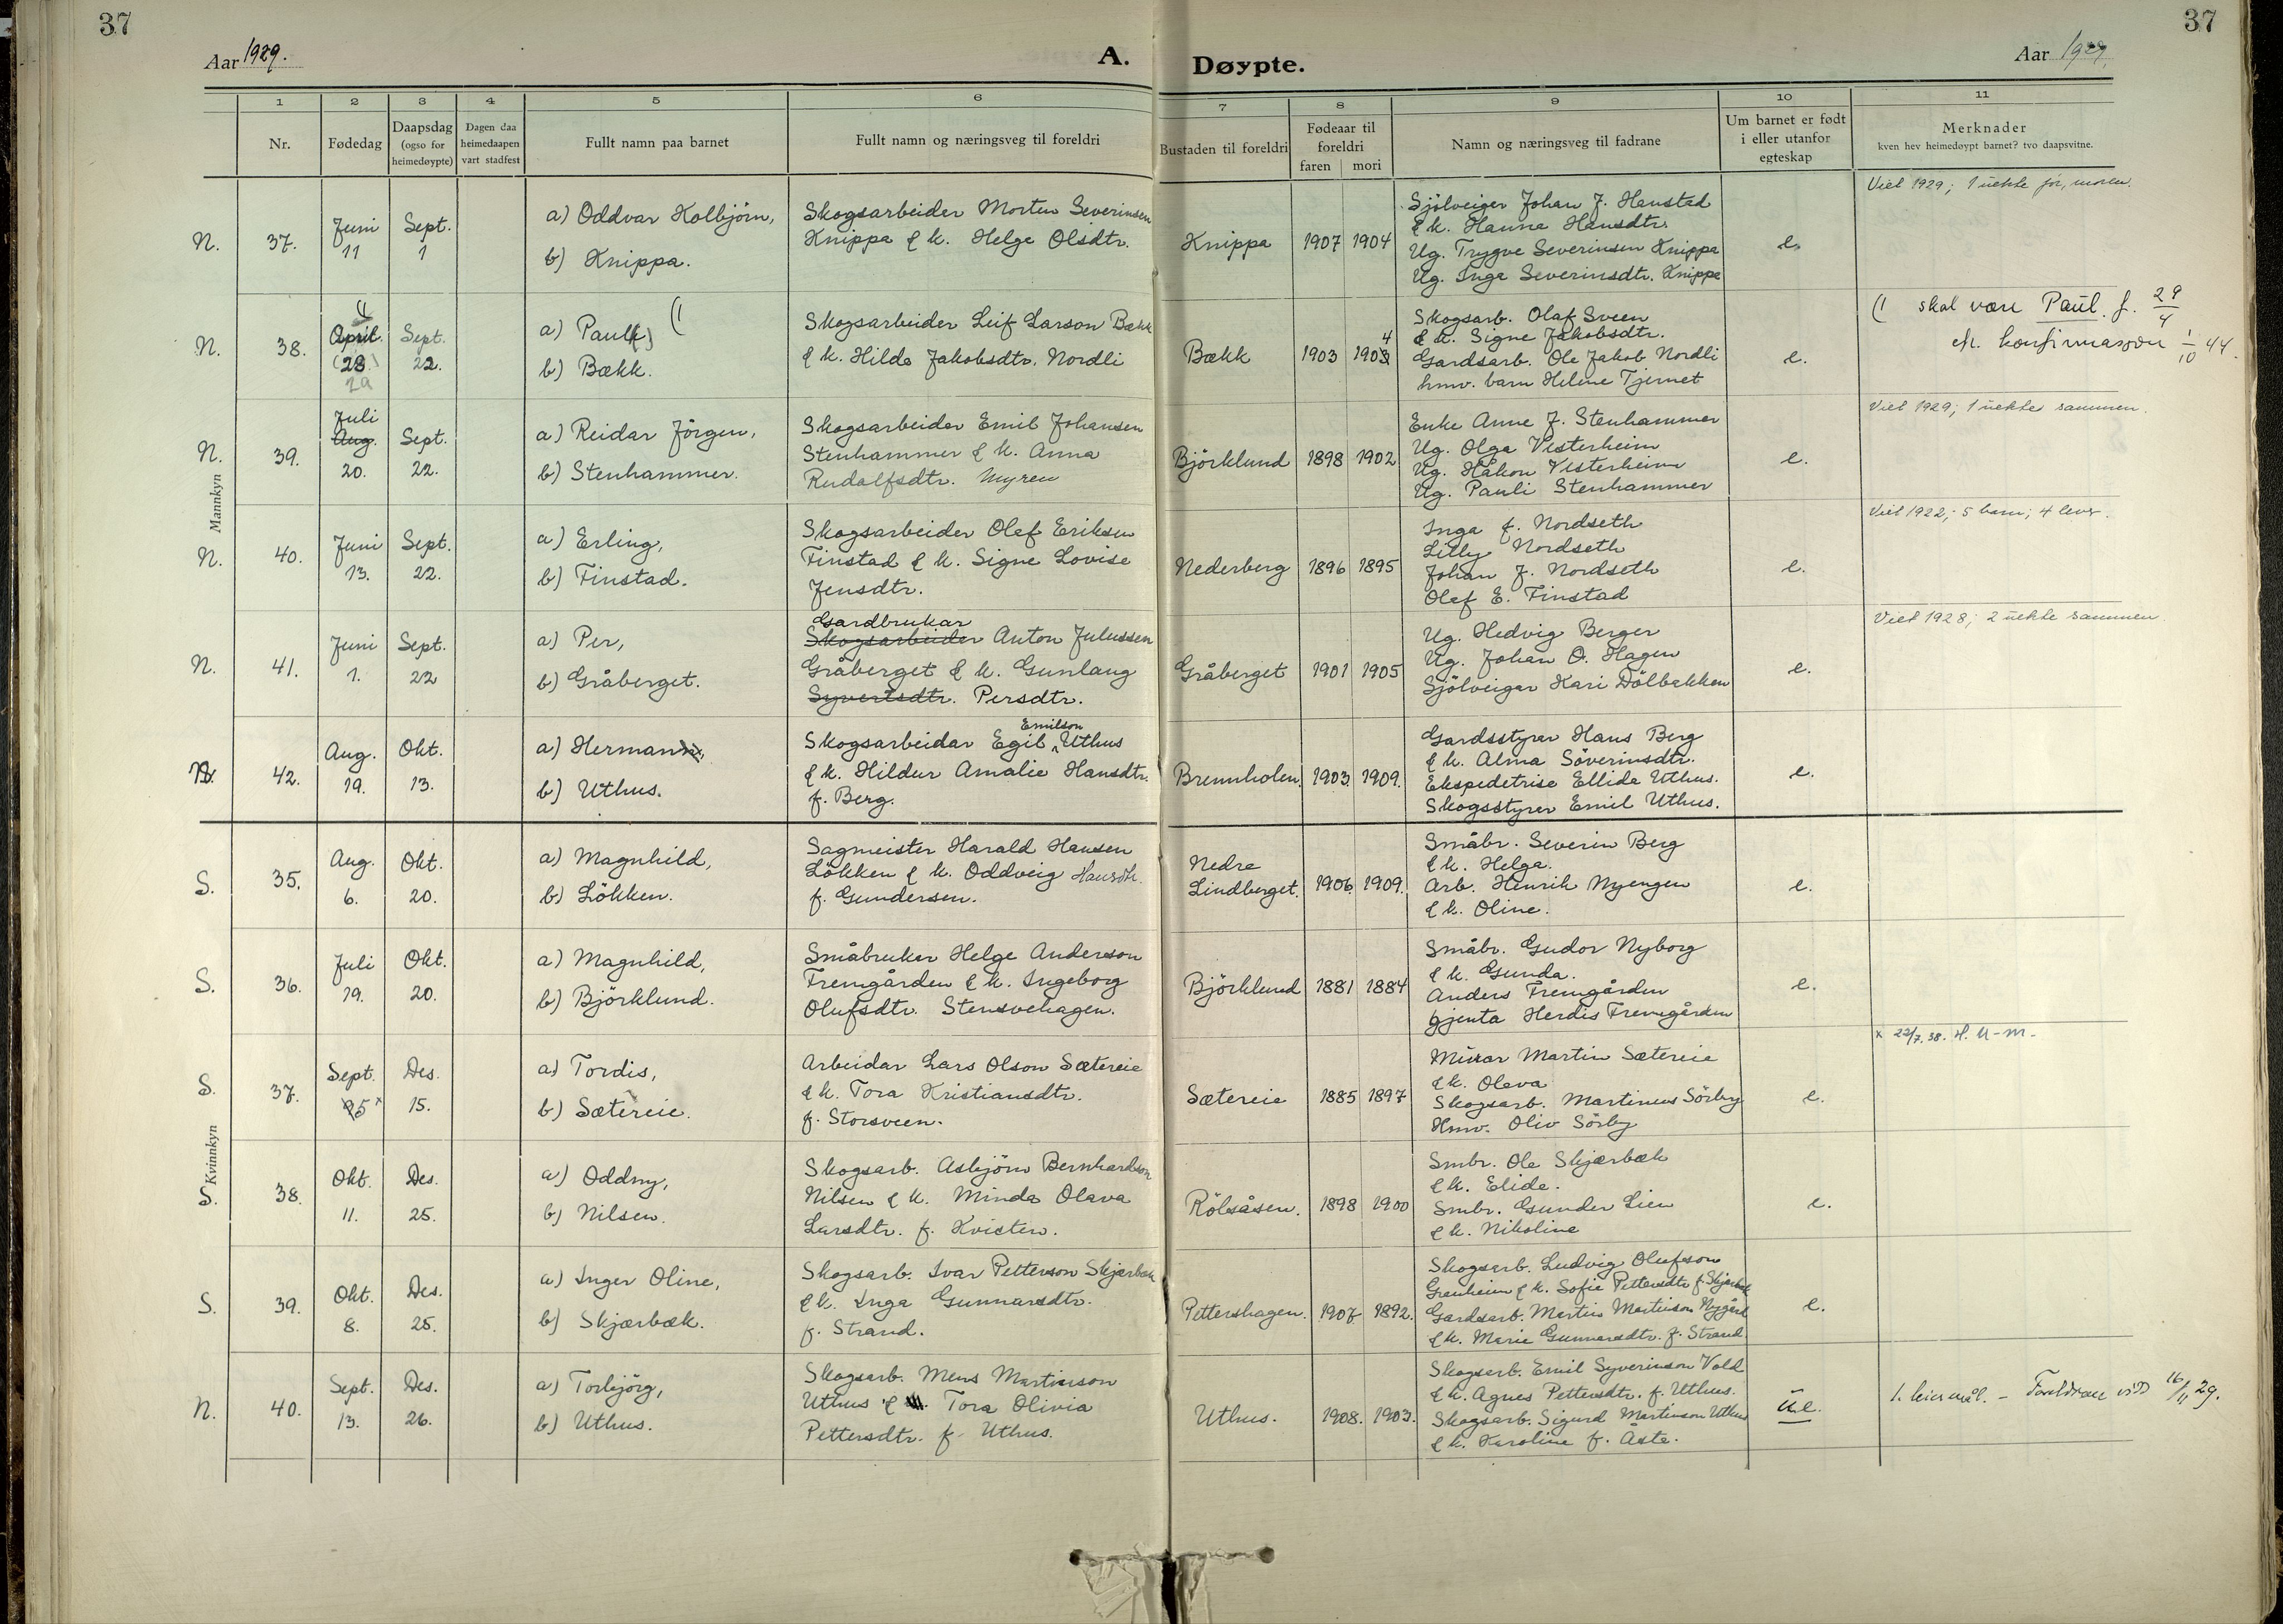 37
37
Aar 1929.
A.
Døypte.
Aar 1929.
1
2
3
4
5
6
7
8
9
10
11
Nr.
Fødedag
Daapsdag (ogso for heimedøypte)
Dagen daa heimedaapen vart stadfest
Fullt namn paa barnet
Fullt namn og næringsveg til foreldri
Bustaden til foreldri
Fødeaar til foreldri
faren mori
Namn og næringsveg til fadrane
Um barnet er født i eller utanfor egteskap
Merknader
kven hev heimedøypt barnet? tvo daapsvitne.
Mankyn
N. 37.
Juni 11
Sept. 1
a) Oddvar Kolbjörn,
b) Knippa.
Skogsarbeider Morten Severinsen
Knippa & k. Helge Olsdtr.
Knippa
1907 1904
Sjölveiger Johan J. Hanstad
& k. Hanna Hansdtr.
Ug. Trygve Severinsen Knippa
Ug. Inga Severinsdtr. Knippa
e.
Viet 1929; 1 uekte før, moren.
N. 38.
(1
April (28) 29
Sept. 22.
a) Paul(k) (1
b) Bækk.
Skogsarbeider Leif Larson Bækk
& k. Hilda Jakobsdtr. Nordli
Bækk
1903 1903 4
Skogsarb. Olaf Sveen
& k. Signe Jakobsdtr.
Gardsarb. Ole Jakob Nordli
hmv. barn Helene Tjernet
e.
(1 skal være Paul. f. 29/4
eft. konfirmasjon 1/10 44.
N. 39.
Juli Aug. 20.
Sept. 22.
a) Reidar Jörgen,
b) Stenhammer.
Skogsarbeider Emil Johansen
Stenhammer & k. Anna
Rudolfsdtr. Myren
Björklund
1898 1902
Enke Anne J. Stenhammer
Ug. Olga Vesterheim
Ug. Håkon Vesterheim
Ug. Pauli Stenhammer
e.
Viet 1929; 1 uekte sammen.
N. 40.
Juni 13.
Sept. 22.
a) Erling,
b) Finstad.
Skogsarbeider Olef Eriksen
Finstad & k. Signe Lovise
Jensdtr.
Nederberg
1896 1895
Inga f. Nordseth
Lilly Nordseth
Johan J. Nordseth
Olef E. Finstad
e.
Viet 1922; 5 barn; 4 lever.
N. 41.
Juni 1.
Sept. 22
a) Per,
b) Gråberget.
Gardbrukar
Skogsarbeider Anton Julussen
Gråberget & k. Gunlaug
Syvertsdtr. Persdtr.
Gråberget
1901 1905
Ug. Hedvig Berger
Ug. Johan O. Hagen
Sjölveigar Kari Dölbakken
e.
Viet 1928; 2 uekte sammen
N. 42.
Aug. 19.
Okt. 13.
a) Hermann,
b) Uthus.
Emilson
Skogsarbeidar Egil Uthus
& k. Hildur Amalie Hansdtr.
f. Berg.
Brennholen.
1903. 1909.
Gardsstyrar Hans Berg
& k. Alma Söverinsdtr.
Ekspedetrise Ellida Uthus.
Skogsstyrer Emil Uthus.
e.
Kvinnkyn
S. 35.
Aug. 6.
Okt. 20.
a) Magnhild,
b) Lökken.
Sagmeister Harald Hansen
Lökken & k. Oddveig Hansdtr.
f. Gundersen.
Nedre
Lindberget.
1906. 1909.
Småbr. Severin Berg
& k. Helga.
Arb. Henrik Nyengen
& k. Oline.
e.
S. 36.
Juli 19.
Okt. 20.
a) Magnhild,
b) Björklund.
Småbruker Helge Anderson
Fremgården & k. Ingeborg
Olufsdtr. Stensvehagen.
Björklund
1881 1884
Småbr. Gudor Nyborg
& k. Gunda.
Anders Fremgården
gjenta Herdis Fremgården
e.
S. 37.
Sept. 25 x
Des. 15.
a) Tordis,
b) Sætereie.
Arbeidar Lars Olson Sætereie
& k. Tora Kristiansdtr.
f. Storsveen.
Sætereie
1885 1897
Murar Martin Sætereie
& k. Oleva
Skogsarb. Martinus Sörby
Hmv. Oliv Sörby
e.
x 22/7. 38. H. U-m-
S. 38.
Okt. 11.
Des. 25.
a) Oddny,
b) Nilsen.
Skogsarb. Asbjörn Bernhardson
Nilsen & k. Minda Olava
Larsdtr. f. Kvisten.
Rölsåsen.
1898 1900
Smbr. Ole Skjærbæk
& k. Elide.
Smbr. Gunder Lien
& k. Nikoline
e.
S. 39.
Okt. 8.
Des. 25.
a) Inger Oline,
b) Skjærbæk.
Skogsarb. Ivar Petterson Skjærbæk
& k. Inga Gunnarsdtr.
f. Strand.
Pettershagen.
1907 1892.
Skogsarb. Ludvig Olufson
Grenheim & k. Sofie Pettersdtr. f. Skjærbæk
Gardsarb. Martin Martinson Nygård
& k. Marie Gunnarsdtr. f. Strand
e.
N. 40.
Sept. 13.
Des. 26.
a) Torbjörg,
b) Uthus.
Skogsarb. Mens Martinson
Uthus & Tora Olivia
Pettersdtr. f. Uthus.
Uthus.
1908. 1903.
Skogsarb. Emil Syverinson Vold
& k. Agnes Pettersdtr. f. Uthus.
Skogsarb. Sigurd Martinson Uthus
& k. Karoline f. Åsta.
u.e.
1. leiermål. – Foreldran vigd 16/11 29.